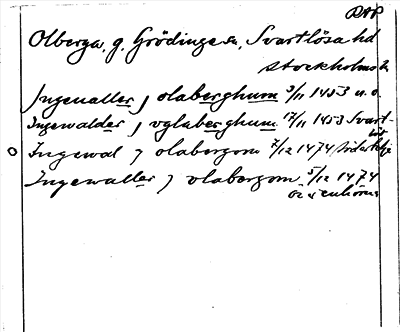 RAP
Olberga, g. Grödinge sn, Svartlösa hd
Stockholms l.
Ingeualler j olaberghum 3/11 1453 u. o.
Ingewalder j vglaberghum 17/11 1453 Svart-
Ingewal j olabergom 7/12 1474 Södertelje
Ingewaller j olabergom 5/12 1474